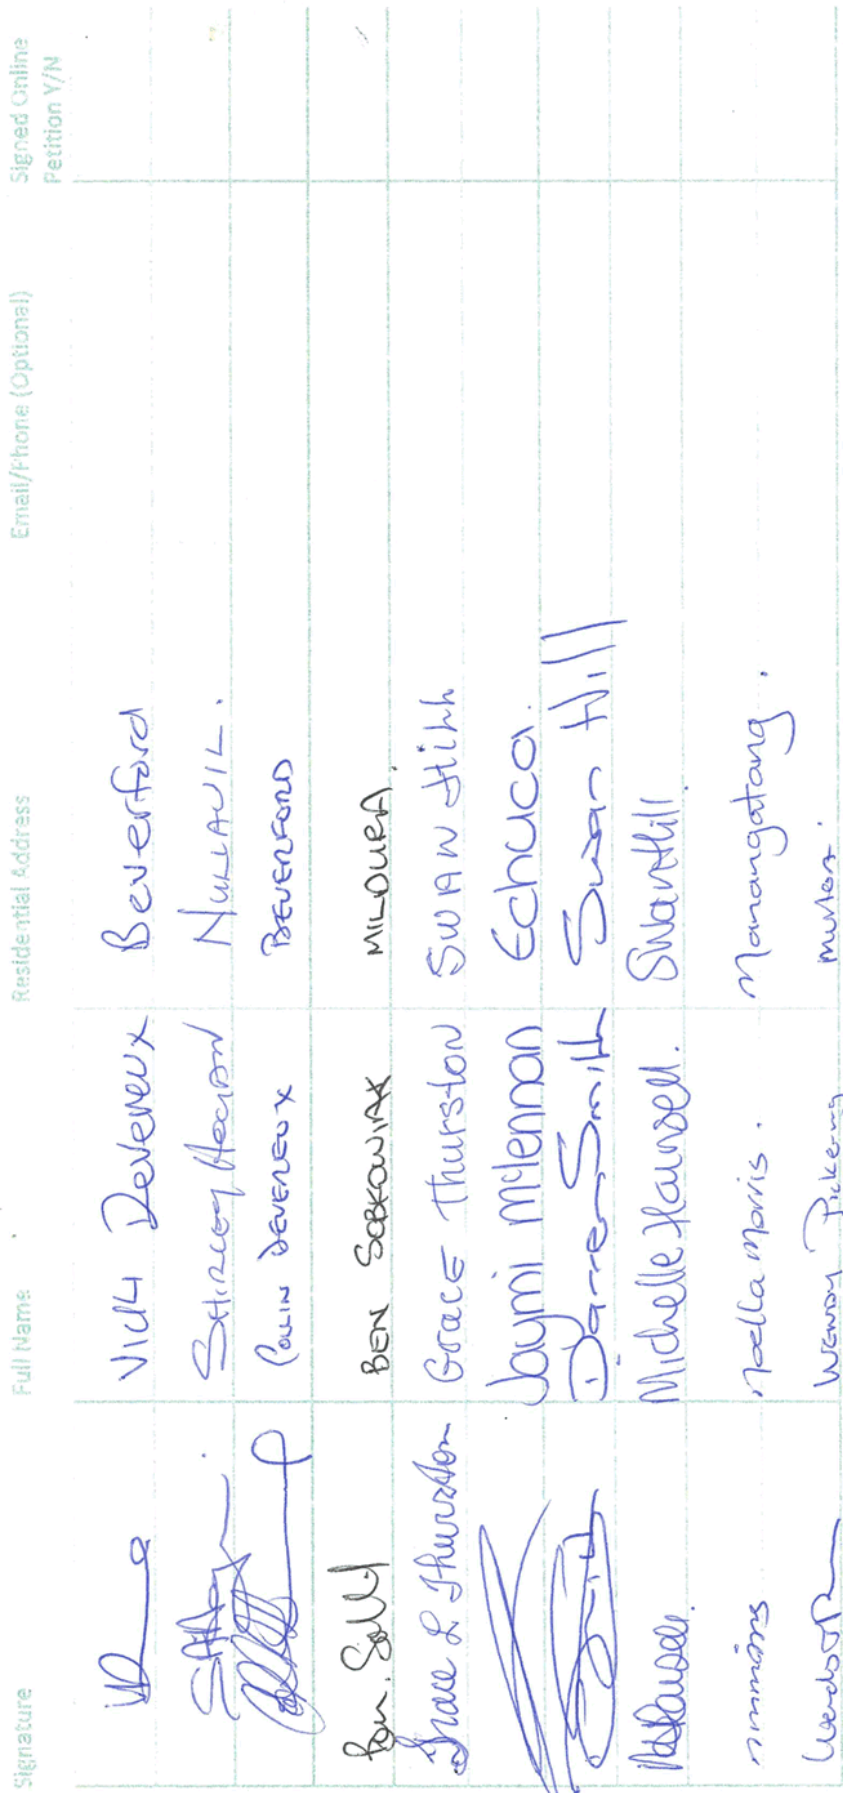 Signature Full Name Residential Address Email/Phone (Optional) Signed Online Petition Y/N
Vicki Devereux Beverford
SHIRLEY HOGAN NULLAWIL.
COLLIN DEVEREUX BEVERFORD
BEN SOBKOWIAK MILDURA.
Grace L Thurston GRACE Thurston SWAN HILL
Jaymi McLennan Echuca.
Smith Darren Smith Swan Hill
Michelle Hansell. Swan Hill.
nmmorris Noella Morris. Manangatang.
WENDY Pickering